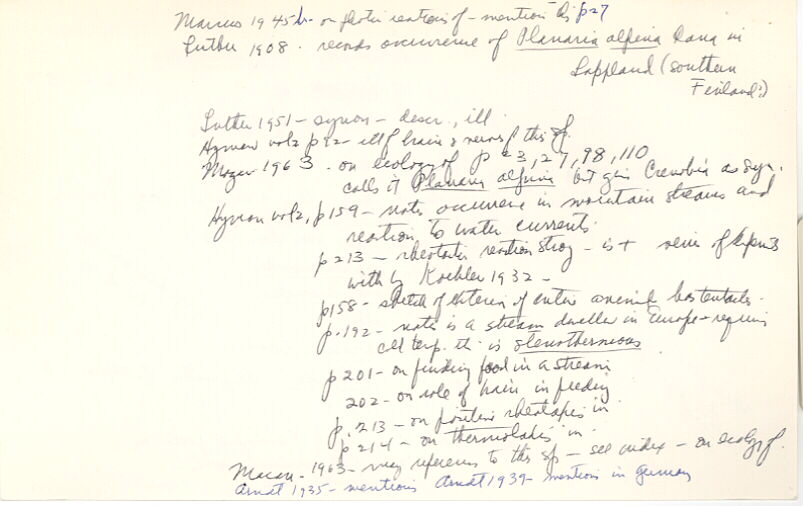 Marcus 1945b - on photic reactions of - mention by p 27
Luther 1908 - records occurrence of Planaria alpina Dana in
Lappland (southern
Finland?)
Luther 1951 - synon - descr., ill.
Hyman vol 2 p 92 - ill of brain & nerves of this sp.
1963 - on ecology of p 23, 27, 98, 110
calls it Planaria alpina but gives Crenobia as syn.
Hyman vol 2, p 159 - notes occurrence in mountain streams and
reaction to water currents
p 213 - rheotactic reaction strong - is + series of expmts
with by Koehler 1932 -
p 158 - sketch of exterior of entire animal has tentacles.
p. 192 - notes is a stream dweller in Europe - requires
cold temp. th. is stenothermous
p 201 - on finding food in a stream
202 - on role of brain in feeding
p. 213 - on positive rheotaxis in
p 214 - on thermotaxis in
Macan - 1963 - many references to this sp - see index - on ecology of.
Arndt 1935 - mentions Arndt 1939 - mention in Germany